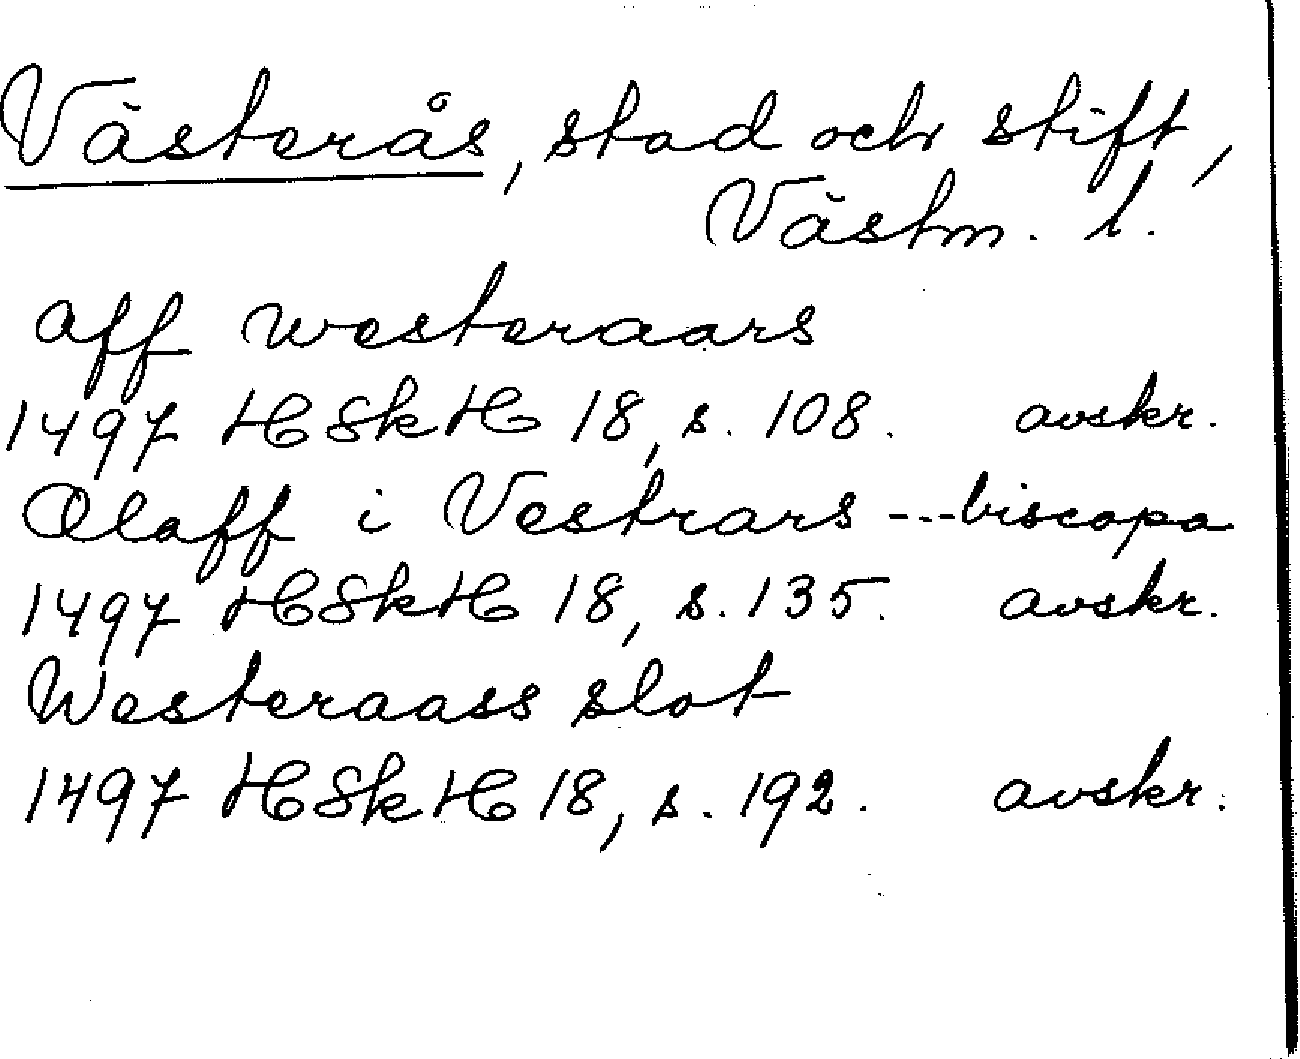 Västerås, stad och stift,
Västm. l.
aff westeraars
1497 HSkH 18, s. 108. avskr.
Olaff i Vestrars ---biscopa
1497 HSkH 18, s. 135. avskr.
Westeraass slot
1497 HSkH 18, s. 192. avskr.